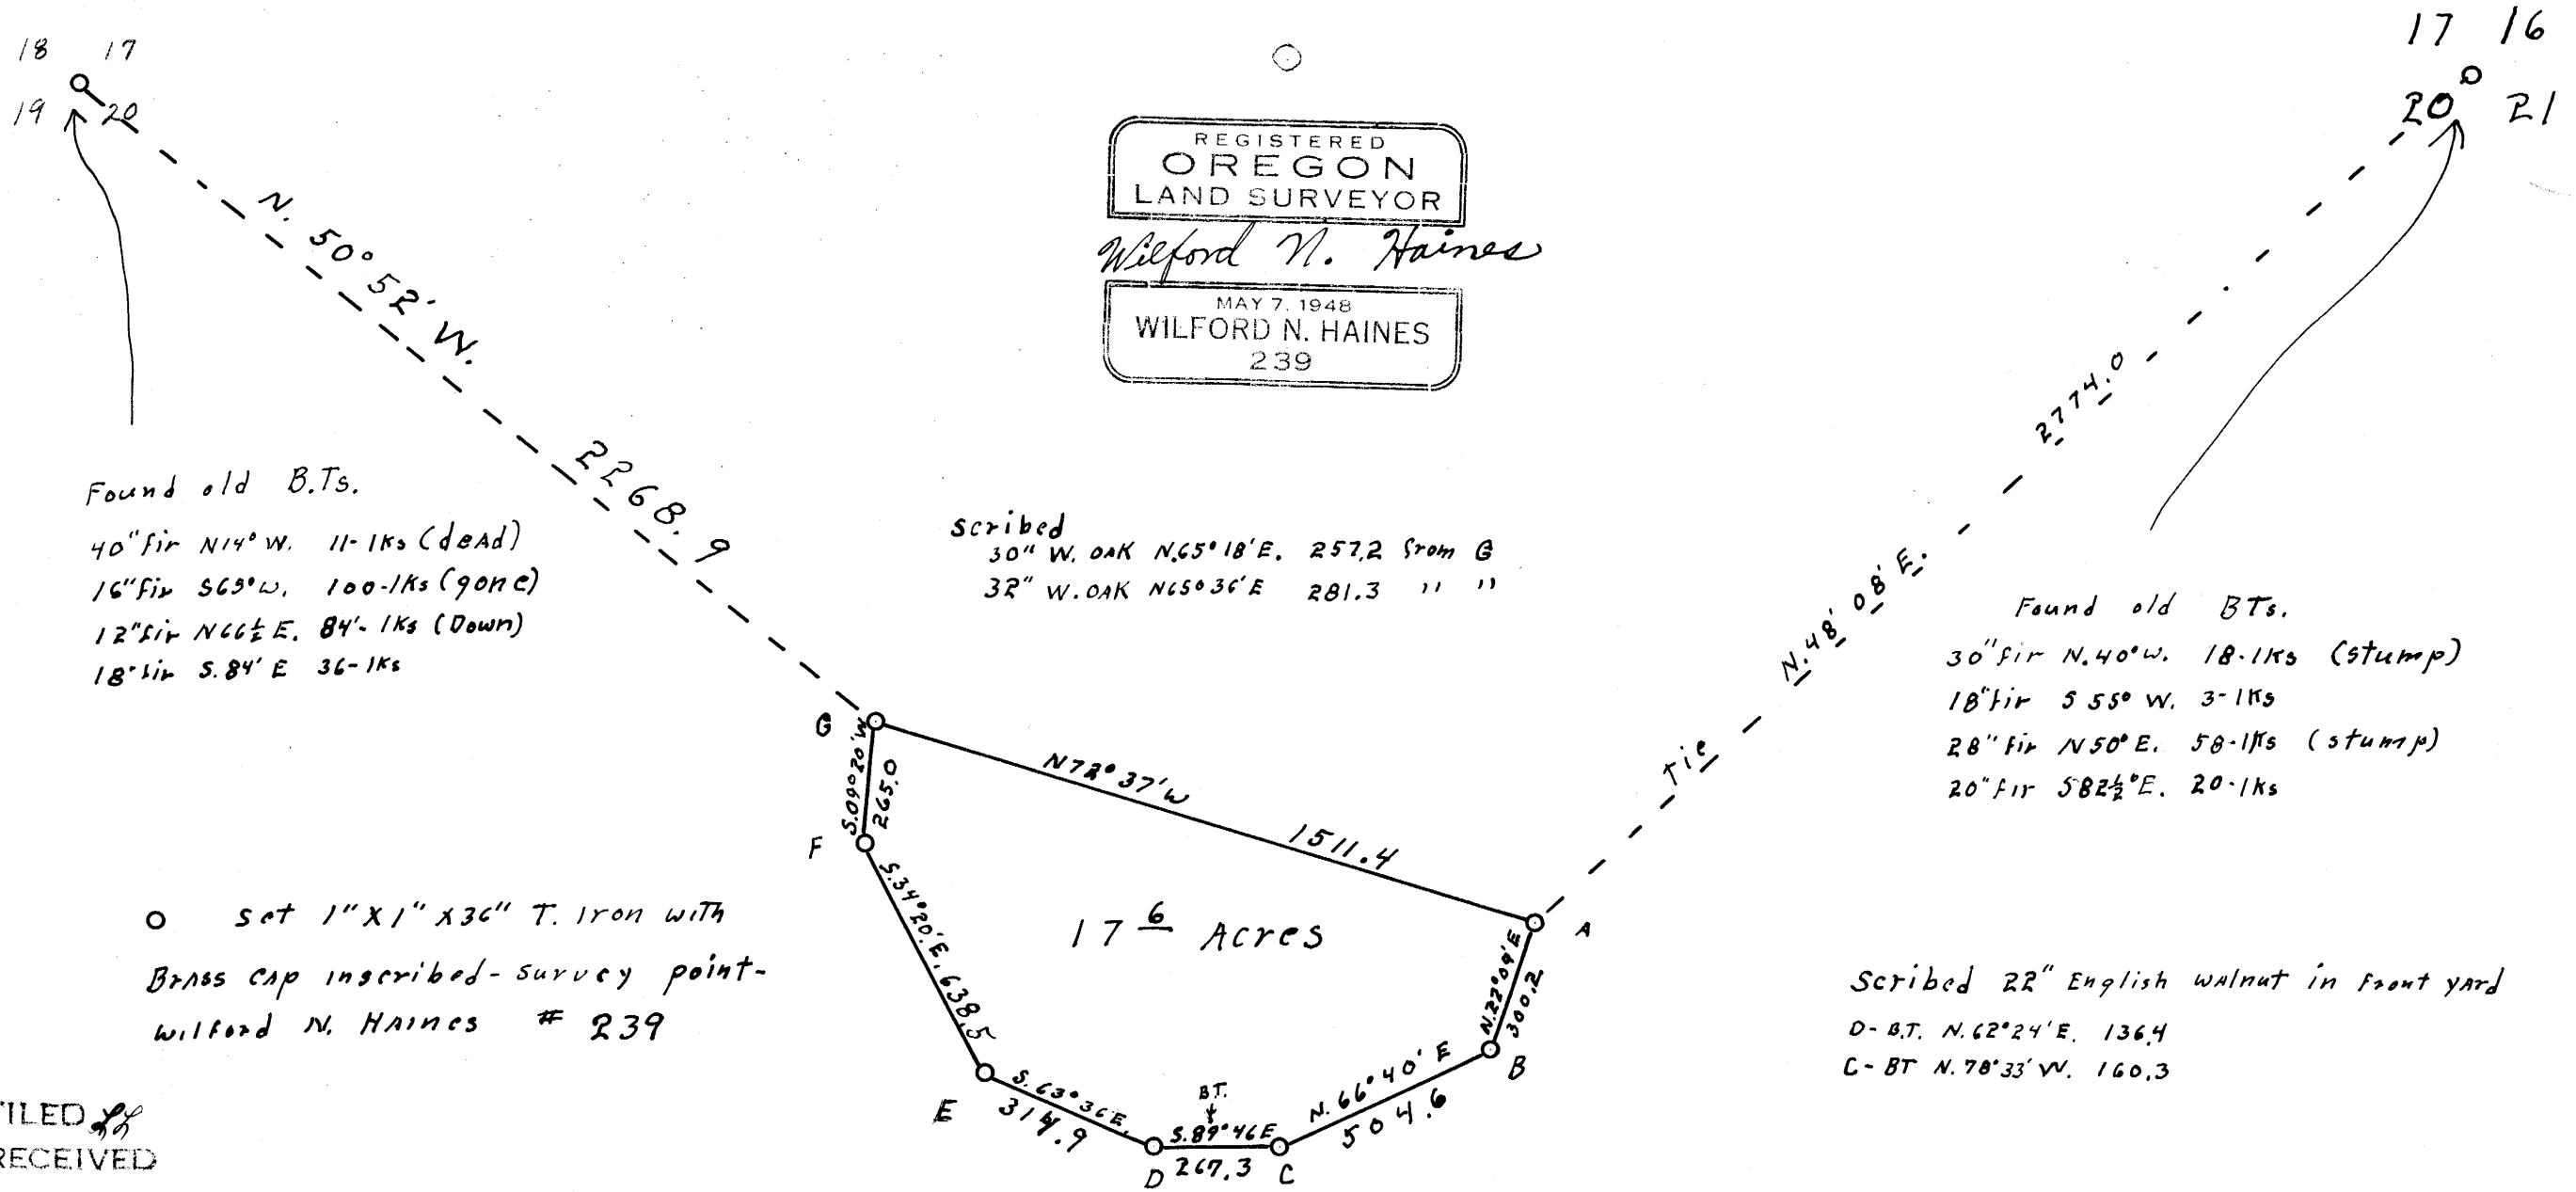 18 17
19 20
17 16
20 21
REGISTERED
OREGON
LAND SURVEYOR
Wilford N. Haines
MAY 7, 1948
WILFORD N. HAINES
239
N. 50° 52' W.
2268.9
2774.0
N. 48' 08' E.
Tie
Found old B.Ts.
40" fir N14° W. 11-lks (dead)
16" fir S65° W. 100-lks (gone)
12" fir N66½ E. 84'-lks (Down)
18" fir S. 84' E 36-lks
scribed
30" W. OAK N.65°18'E. 257.2 from G
32" W. OAK N65°36'E 281.3 " "
Found old BTs.
30" fir N. 40° W. 18-lks (stump)
18" fir S 55° W. 3-lks
28" fir N 50° E. 58-lks (stump)
20" fir S82½°E. 20-lks
G
S.09°20'W
265.0
N72°37'W
1511.4
F
S.34°20'E. 638.5
17 6 Acres
A
N.22°09'E
300.2
B
N. 66° 40' E
504.6
E
S. 63° 36 E.
314.9
B.T.
S.89°46 E
D 267.3 C
O set 1" X 1" X 36" T. Iron with
Brass cap inscribed - survey point -
Wilford N. Haines # 239
Scribed 22" English walnut in front yard
D- B.T. N. 62°24' E. 136.4
C- BT N. 78°33' W. 160.3
FILED
RECEIVED